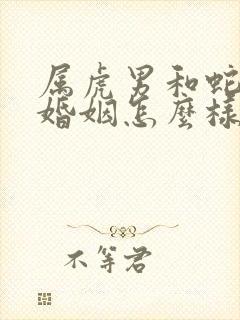 属虎男和蛇
婚姻怎麼樣
不等君